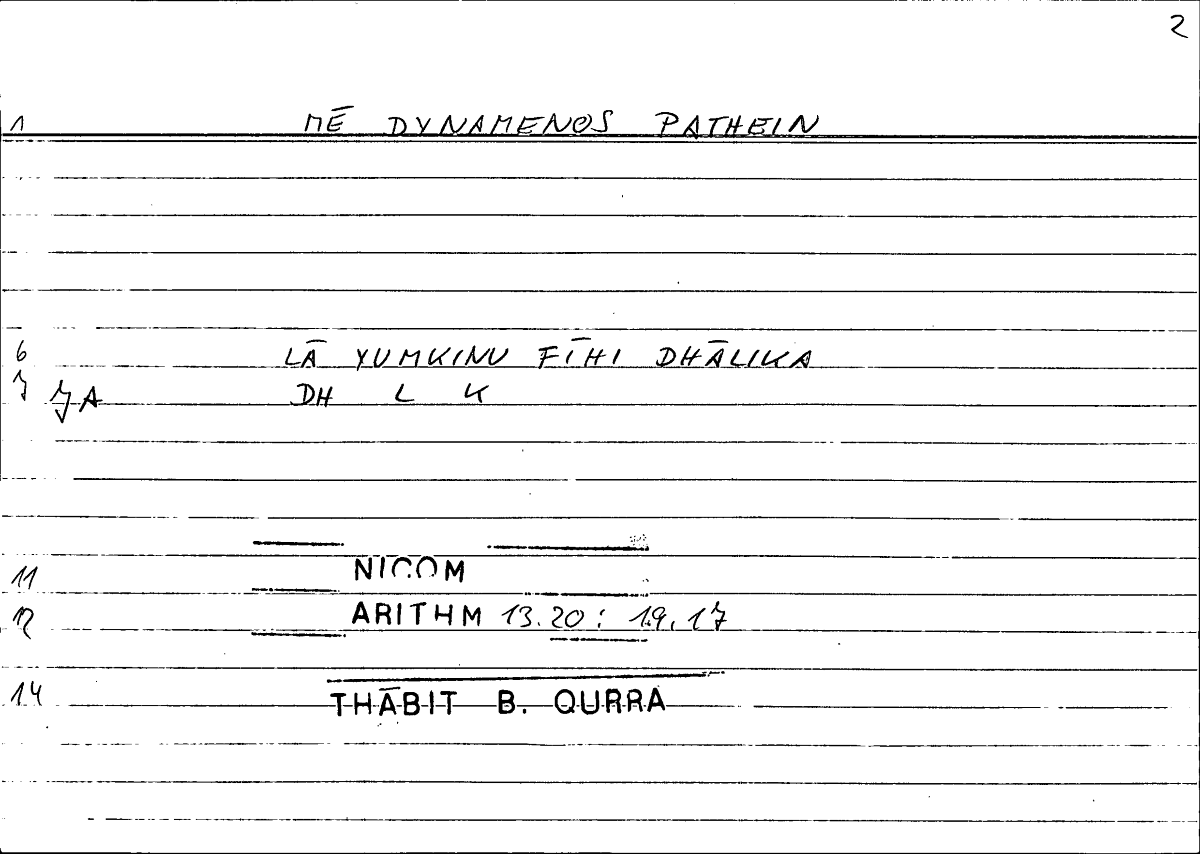 2
1 MĒ DYNAMENOS PATHEIN
6 LĀ YUMKINU FĪHI DHĀLIKA
7 7A DH L K
11 NICOM
12 ARITHM 13.20 : 19.17
14 THĀBIT B. QURRA